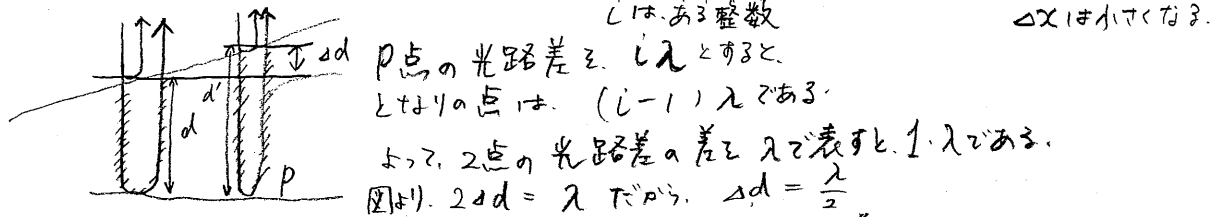 iは、ある整数
Δxは小さくなる.
P点の光路差を、iλとすると、
となりの点は、(i-1)λである.
よって、2点の光路差の差をλで表すと、1・λである.
図より、2Δd = λ だから、Δd = λ/2
Δd
d'
d
P